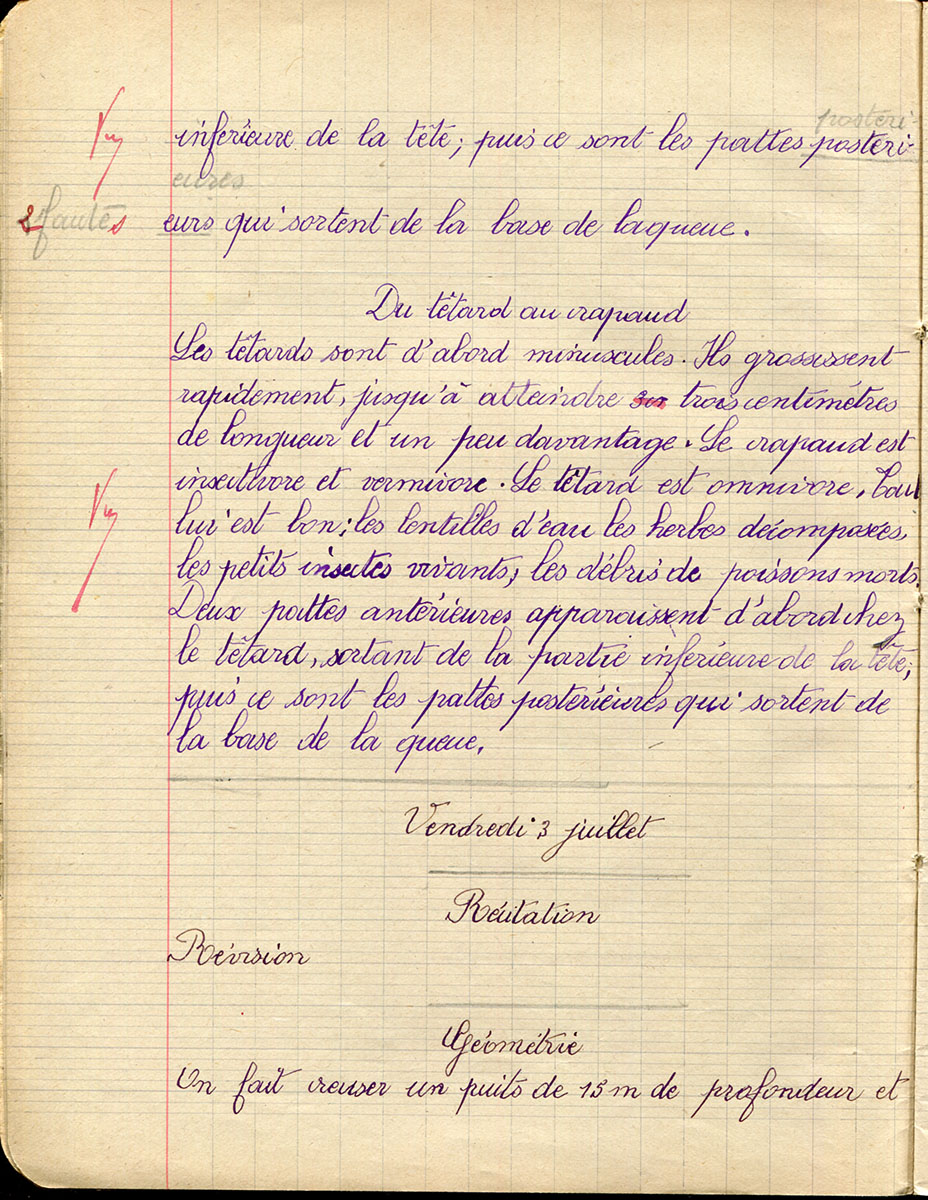 posteri-
Vu inférieure de la tête; puis ce sont les pattes posteri-
eures
2 fautes eurs qui sortent de la base de laqueue.
Du têtard au crapaud
Les têtards sont d'abord minuscules. Ils grossissent
rapidement, jusqu'à atteindre trois centimètres
de longueur et un peu davantage. Le crapaud est
insectivore et vermivore. Le têtard est omnivore, Tout
Vu lui est bon; les lentilles d'eau les herbes décomposées,
les petits insectes vivants, les débris de poissons morts.
Deux pattes antérieures apparaissent d'abord chez
le têtard, sortant de la partie inférieure de la tête;
puis ce sont les pattes postérieures qui sortent de
la base de la queue.
Vendredi 3 juillet
Récitation
Révision
Géométrie
On fait creuser un puits de 15 m de profondeur et